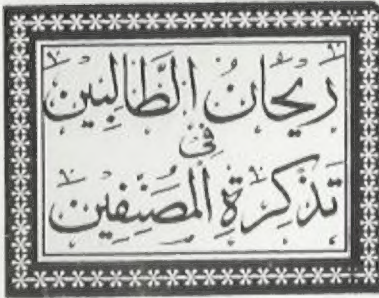 رَيْحَانُ الطَّالِبِيْنَ
فِيْ
تَذْكِرَةِ الْمُصَنِّفِيْنَ